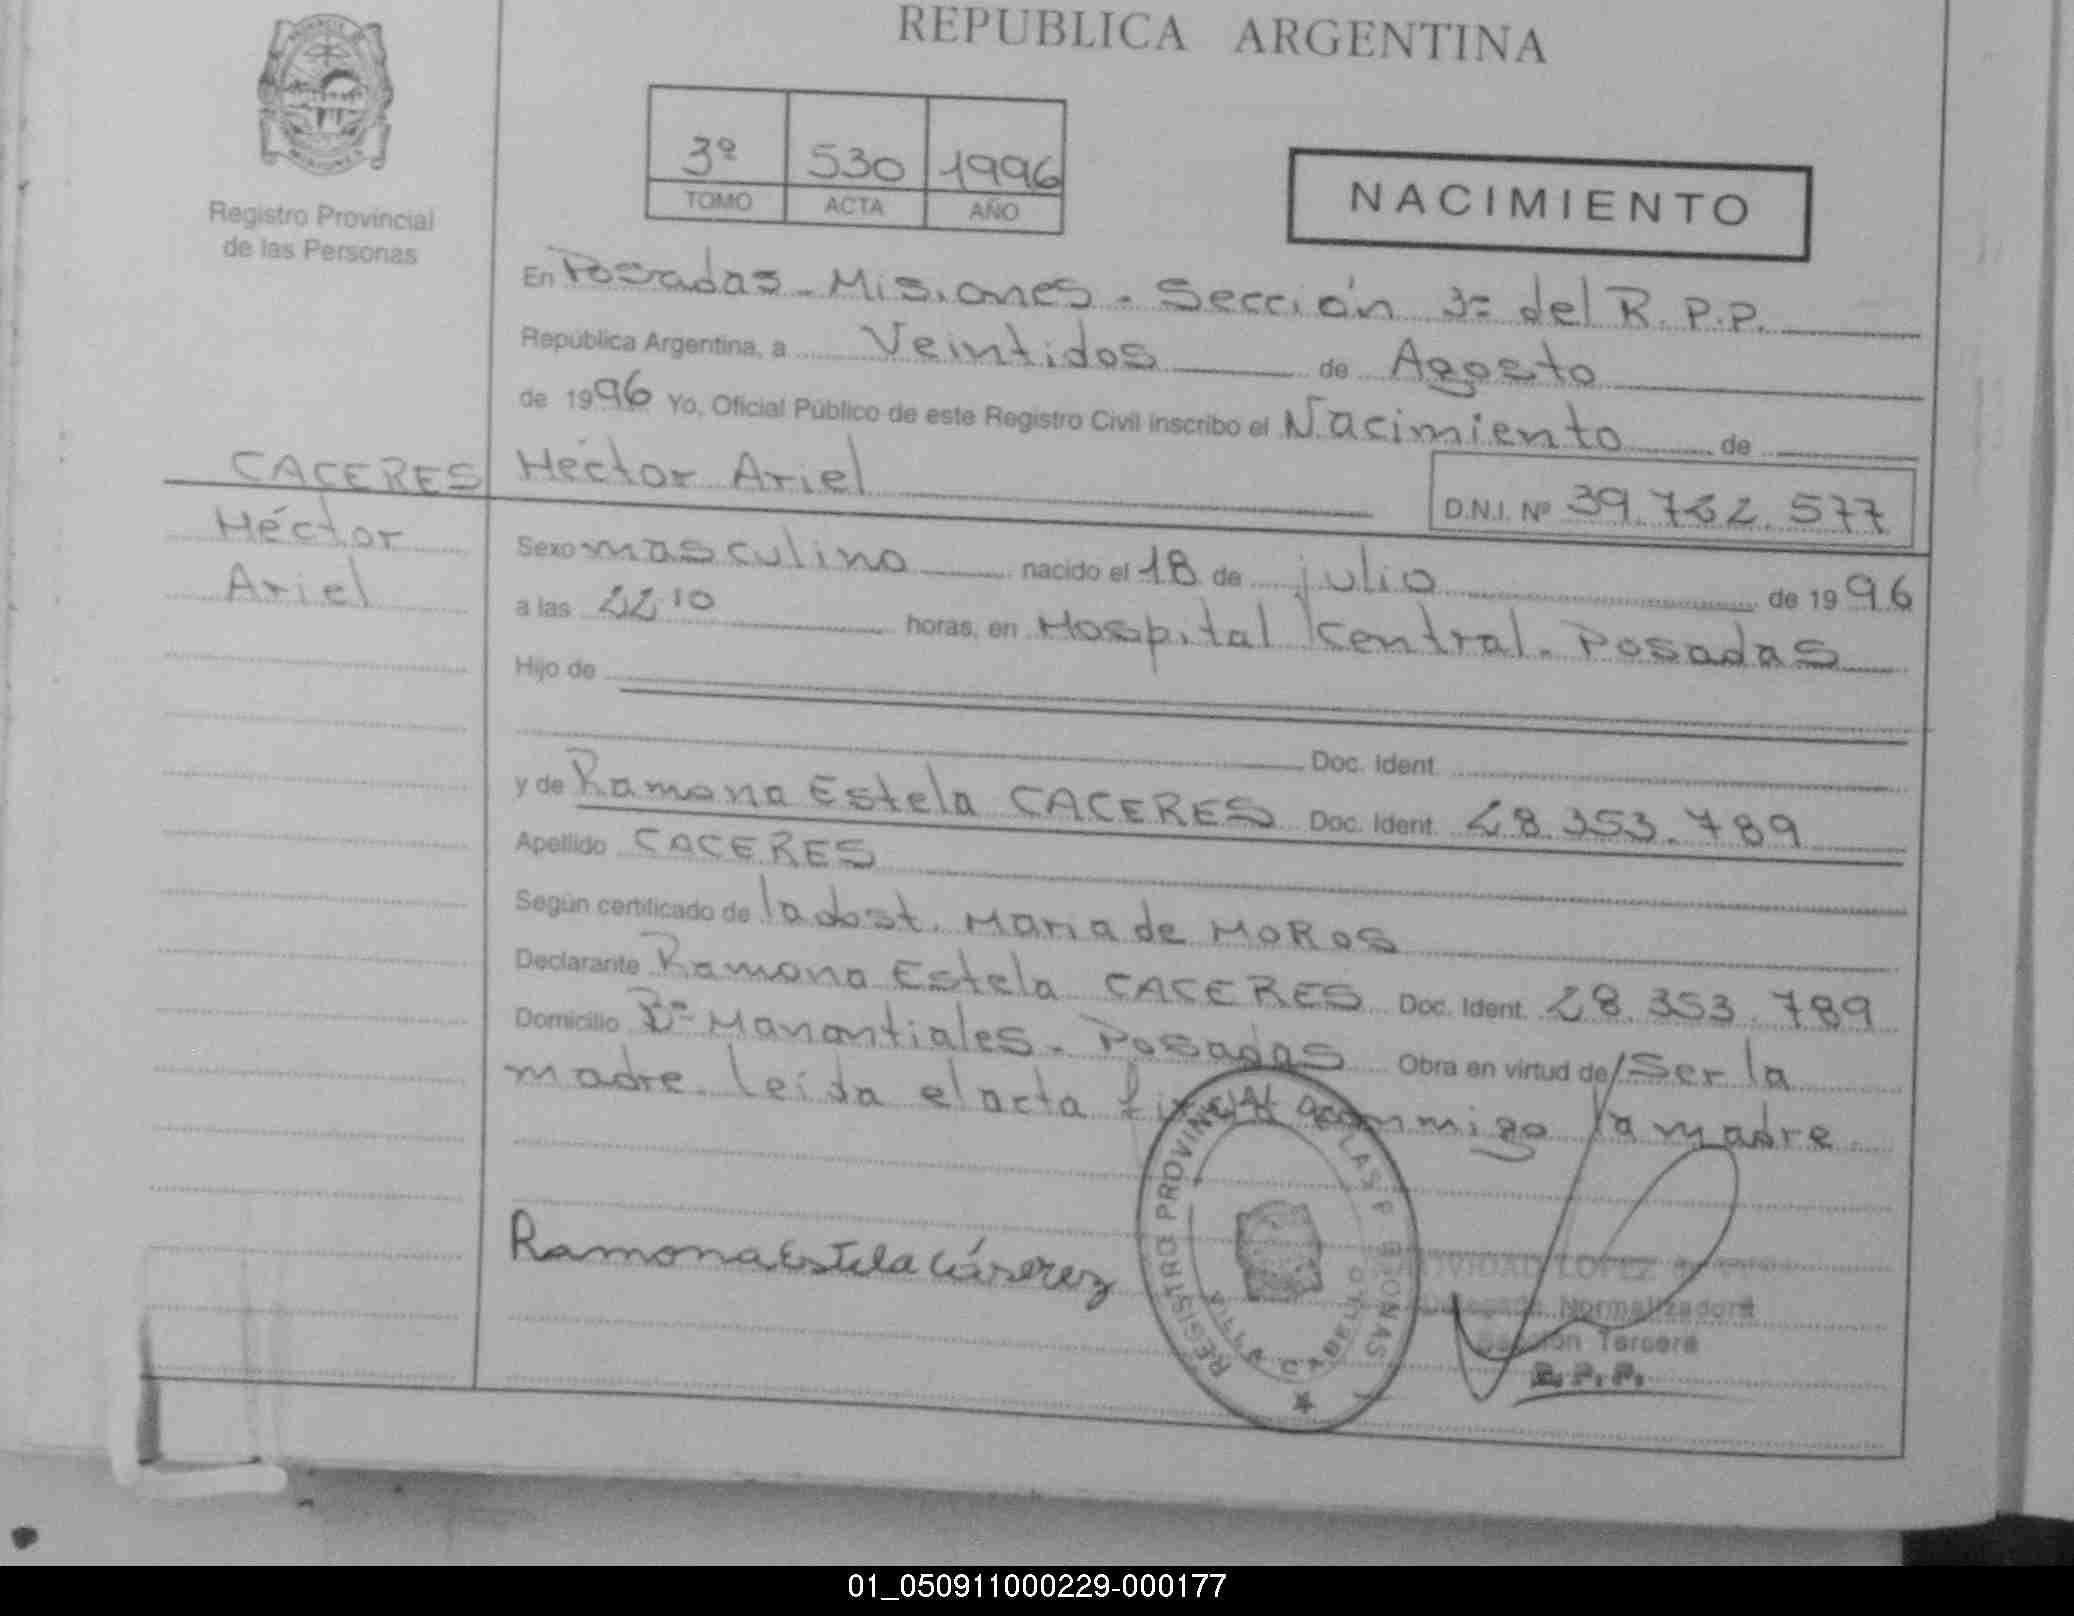 REPUBLICA ARGENTINA
3º 530 1996
TOMO ACTA AÑO
NACIMIENTO
Registro Provincial
de las Personas
En Posadas - Misiones - Sección 3ª del R.P.P.
República Argentina, a Veintidos de Agosto
de 1996 Yo, Oficial Público de este Registro Civil inscribo el Nacimiento de
CACERES Héctor Ariel D.N.I. Nº 39.762.577
Héctor
Ariel
Sexo masculino nacido el 18 de julio de 1996
a las 22 10 horas, en Hospital Central - Posadas
Hijo de
Doc. Ident.
y de Ramona Estela CACERES Doc. Ident. 28.353.789
Apellido CACERES
Según certificado de la obst. Maria de MOROS
Declarante Ramona Estela CACERES Doc. Ident. 28.353.789
Domicilio Bº Manantiales - Posadas Obra en virtud de ser la
madre. Leída el acta conmigo la madre.
REGISTRO PROVINCIAL DE LAS PERSONAS
VILLA CABELLO
Ramona Estela Cáserez
LOPEZ
Normalizadora
Sección Tercera
R.P.P.
01_050911000229-000177